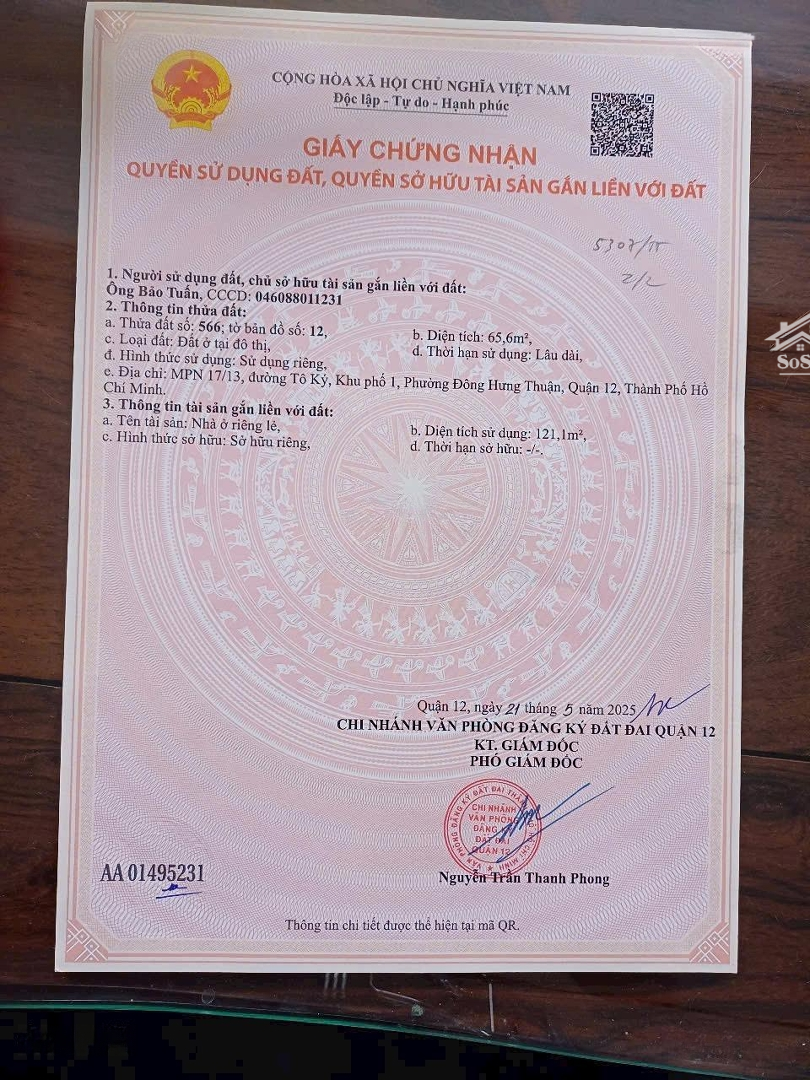 CỘNG HÒA XÃ HỘI CHỦ NGHĨA VIỆT NAM
Độc lập - Tự do - Hạnh phúc
GIẤY CHỨNG NHẬN
QUYỀN SỬ DỤNG ĐẤT, QUYỀN SỞ HỮU TÀI SẢN GẮN LIỀN VỚI ĐẤT
2/2
1. Người sử dụng đất, chủ sở hữu tài sản gắn liền với đất:
Ông Bảo Tuấn, CCCD: 046088011231
2. Thông tin thửa đất:
a. Thửa đất số: 566; tờ bản đồ số: 12,
b. Diện tích: 65,6m²,
c. Loại đất: Đất ở tại đô thị,
d. Thời hạn sử dụng: Lâu dài,
đ. Hình thức sử dụng: Sử dụng riêng,
e. Địa chỉ: MPN 17/13, đường Tô Ký, Khu phố 1, Phường Đông Hưng Thuận, Quận 12, Thành Phố Hồ
Chí Minh.
3. Thông tin tài sản gắn liền với đất:
a. Tên tài sản: Nhà ở riêng lẻ,
b. Diện tích sử dụng: 121,1m²,
c. Hình thức sở hữu: Sở hữu riêng,
d. Thời hạn sở hữu: -/-.
SoS
Quận 12, ngày 21 tháng 5 năm 2025
CHI NHÁNH VĂN PHÒNG ĐĂNG KÝ ĐẤT ĐAI QUẬN 12
KT. GIÁM ĐỐC
PHÓ GIÁM ĐỐC
CHI NHÁNH
VĂN PHÒNG
ĐĂNG
ĐẤT ĐAI
QUẬN 12
Nguyễn Trần Thanh Phong
AA 01495231
Thông tin chi tiết được thể hiện tại mã QR.